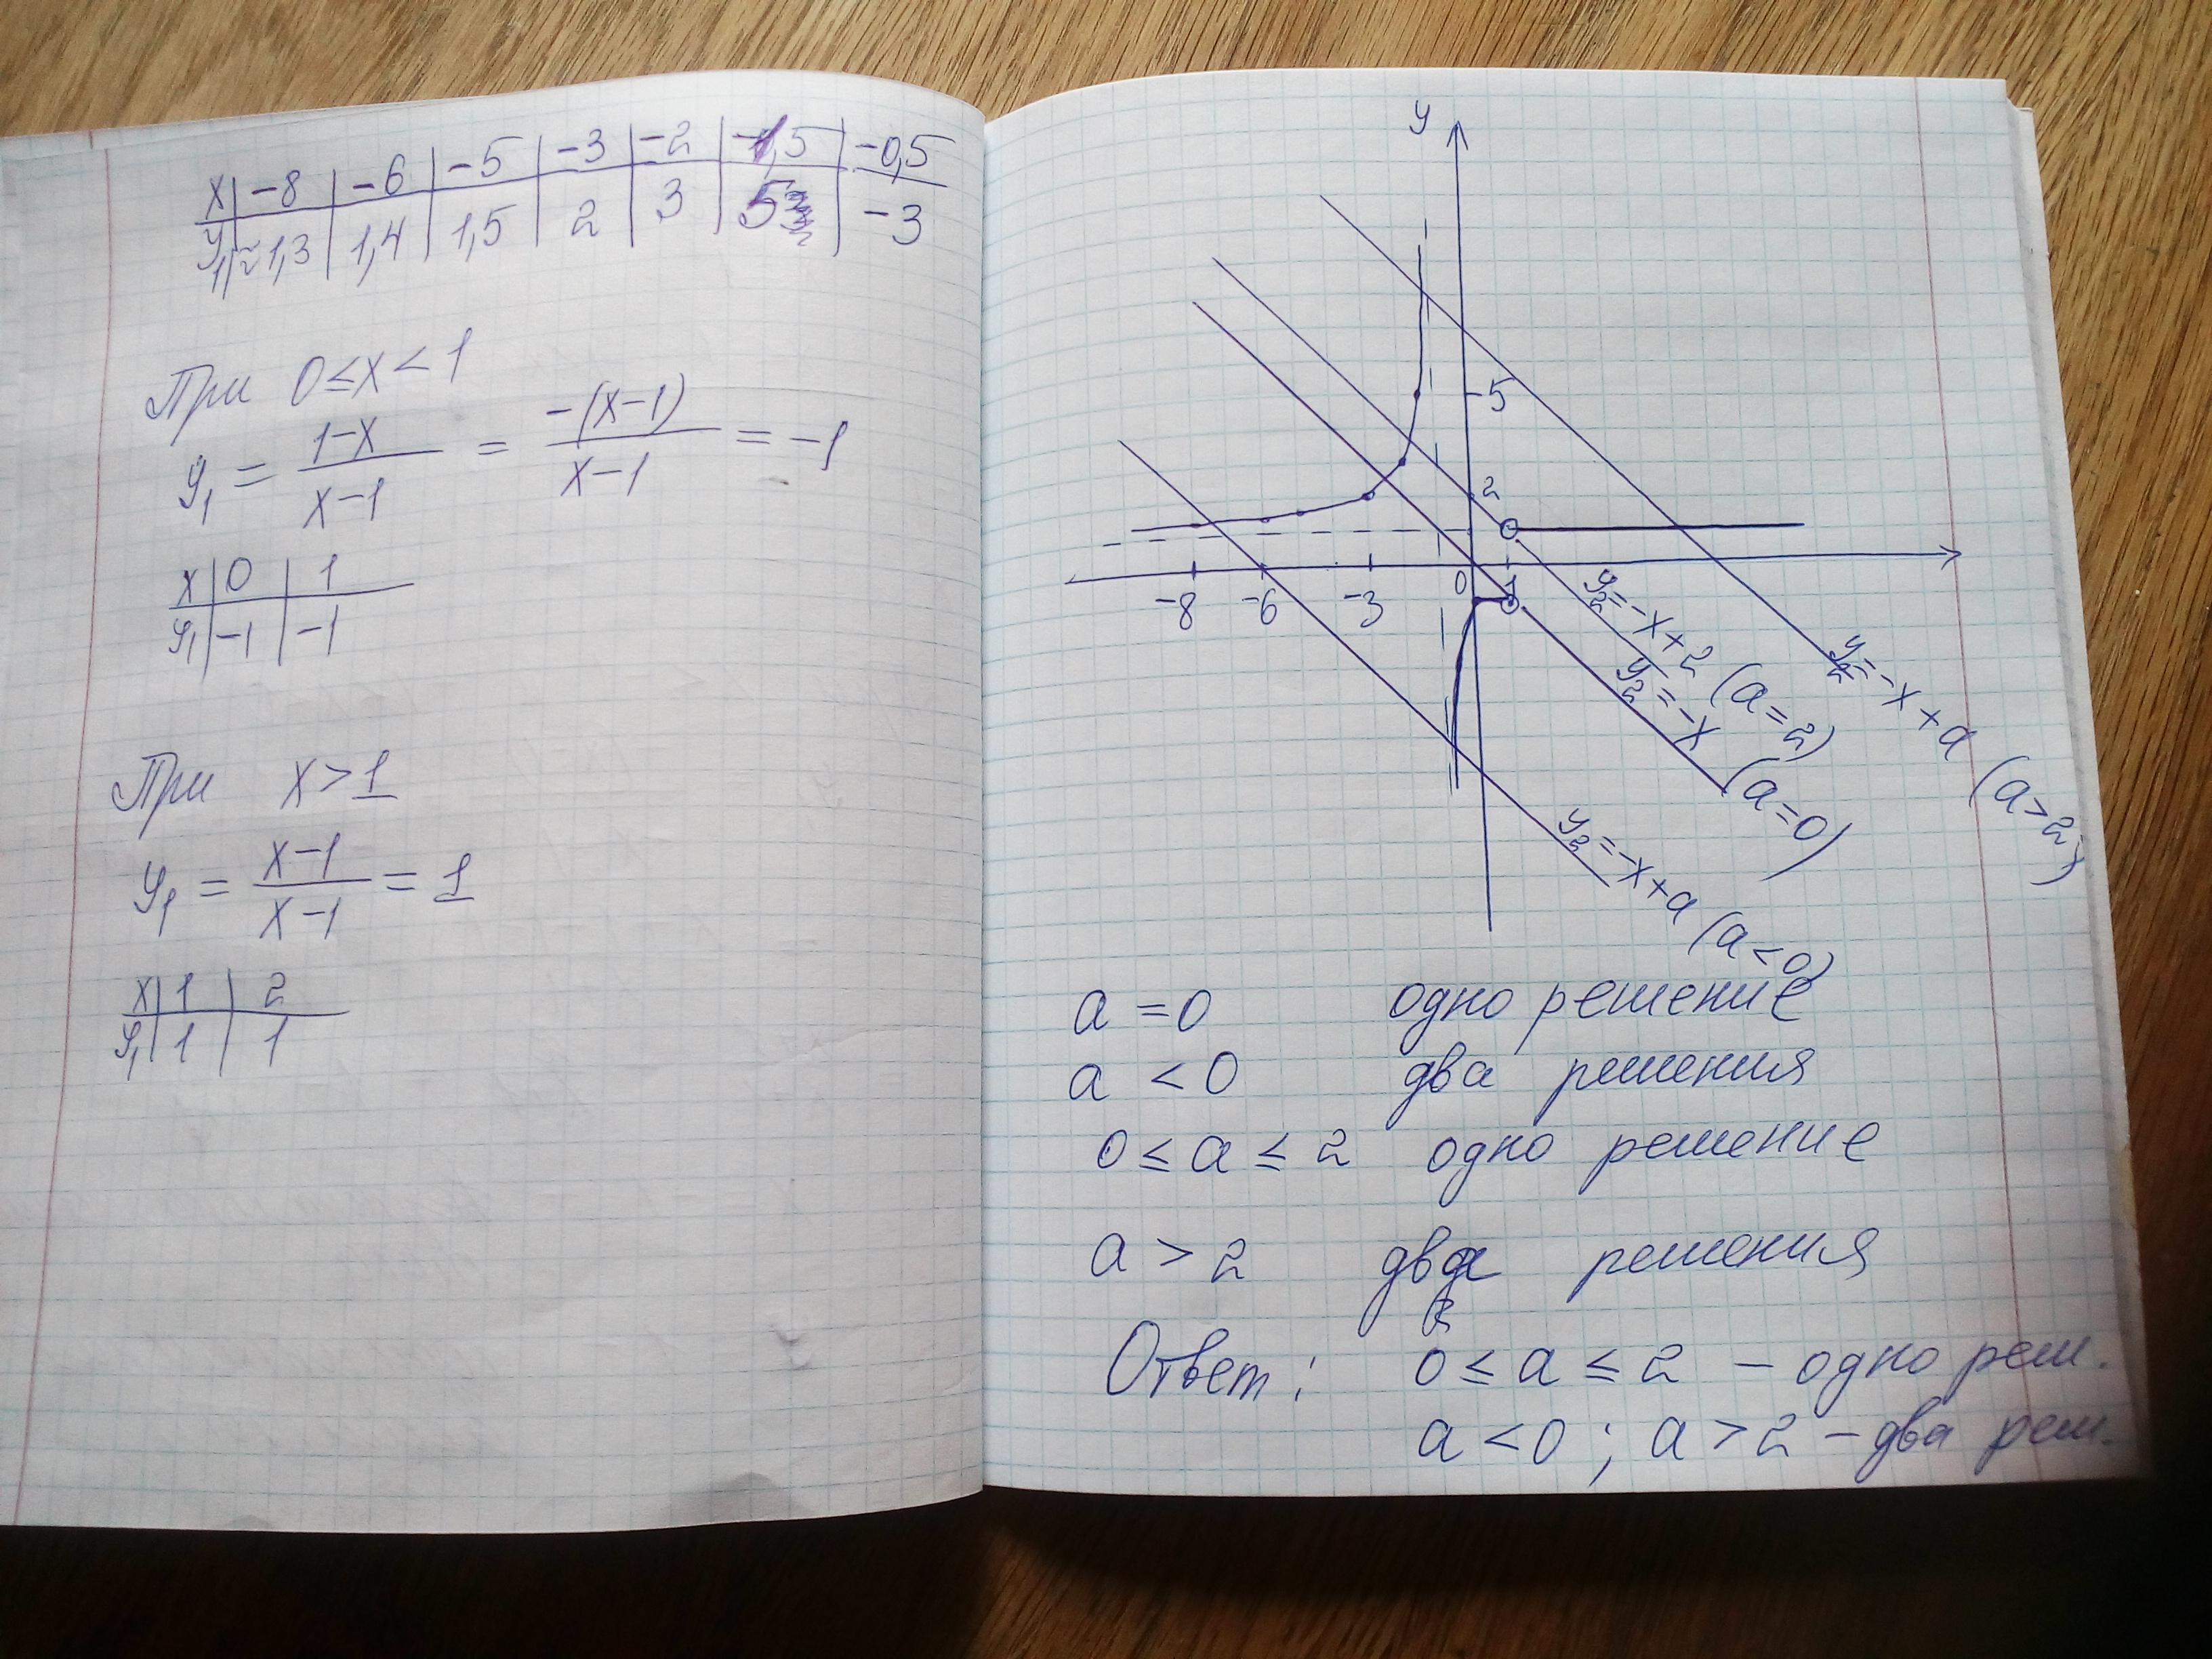 x | -8 | -6 | -5 | -3 | -2 | -1,5 | -0,5
y₁ | ≈1,3 | 1,4 | 1,5 | 2 | 3 | 5 | -3
При 0≤x<1
y₁ = (1-x)/(x-1) = (-(x-1))/(x-1) = -1
x | 0 | 1
y₁ | -1 | -1
При x>1
y₁ = (x-1)/(x-1) = 1
x | 1 | 2
y₁ | 1 | 1
y
5
2
-8 -6 -3 0 1
y₂=-x+2 (a=2)
y₂=-x (a=0)
y₂=-x+a (a>2)
y₂=-x+a (a<0)
a =0 одно решение
a <0 два решения
0≤a≤2 одно решение
a>2 два решения
Ответ: 0≤a≤2 – одно реш.
a<0; a>2 – два реш.